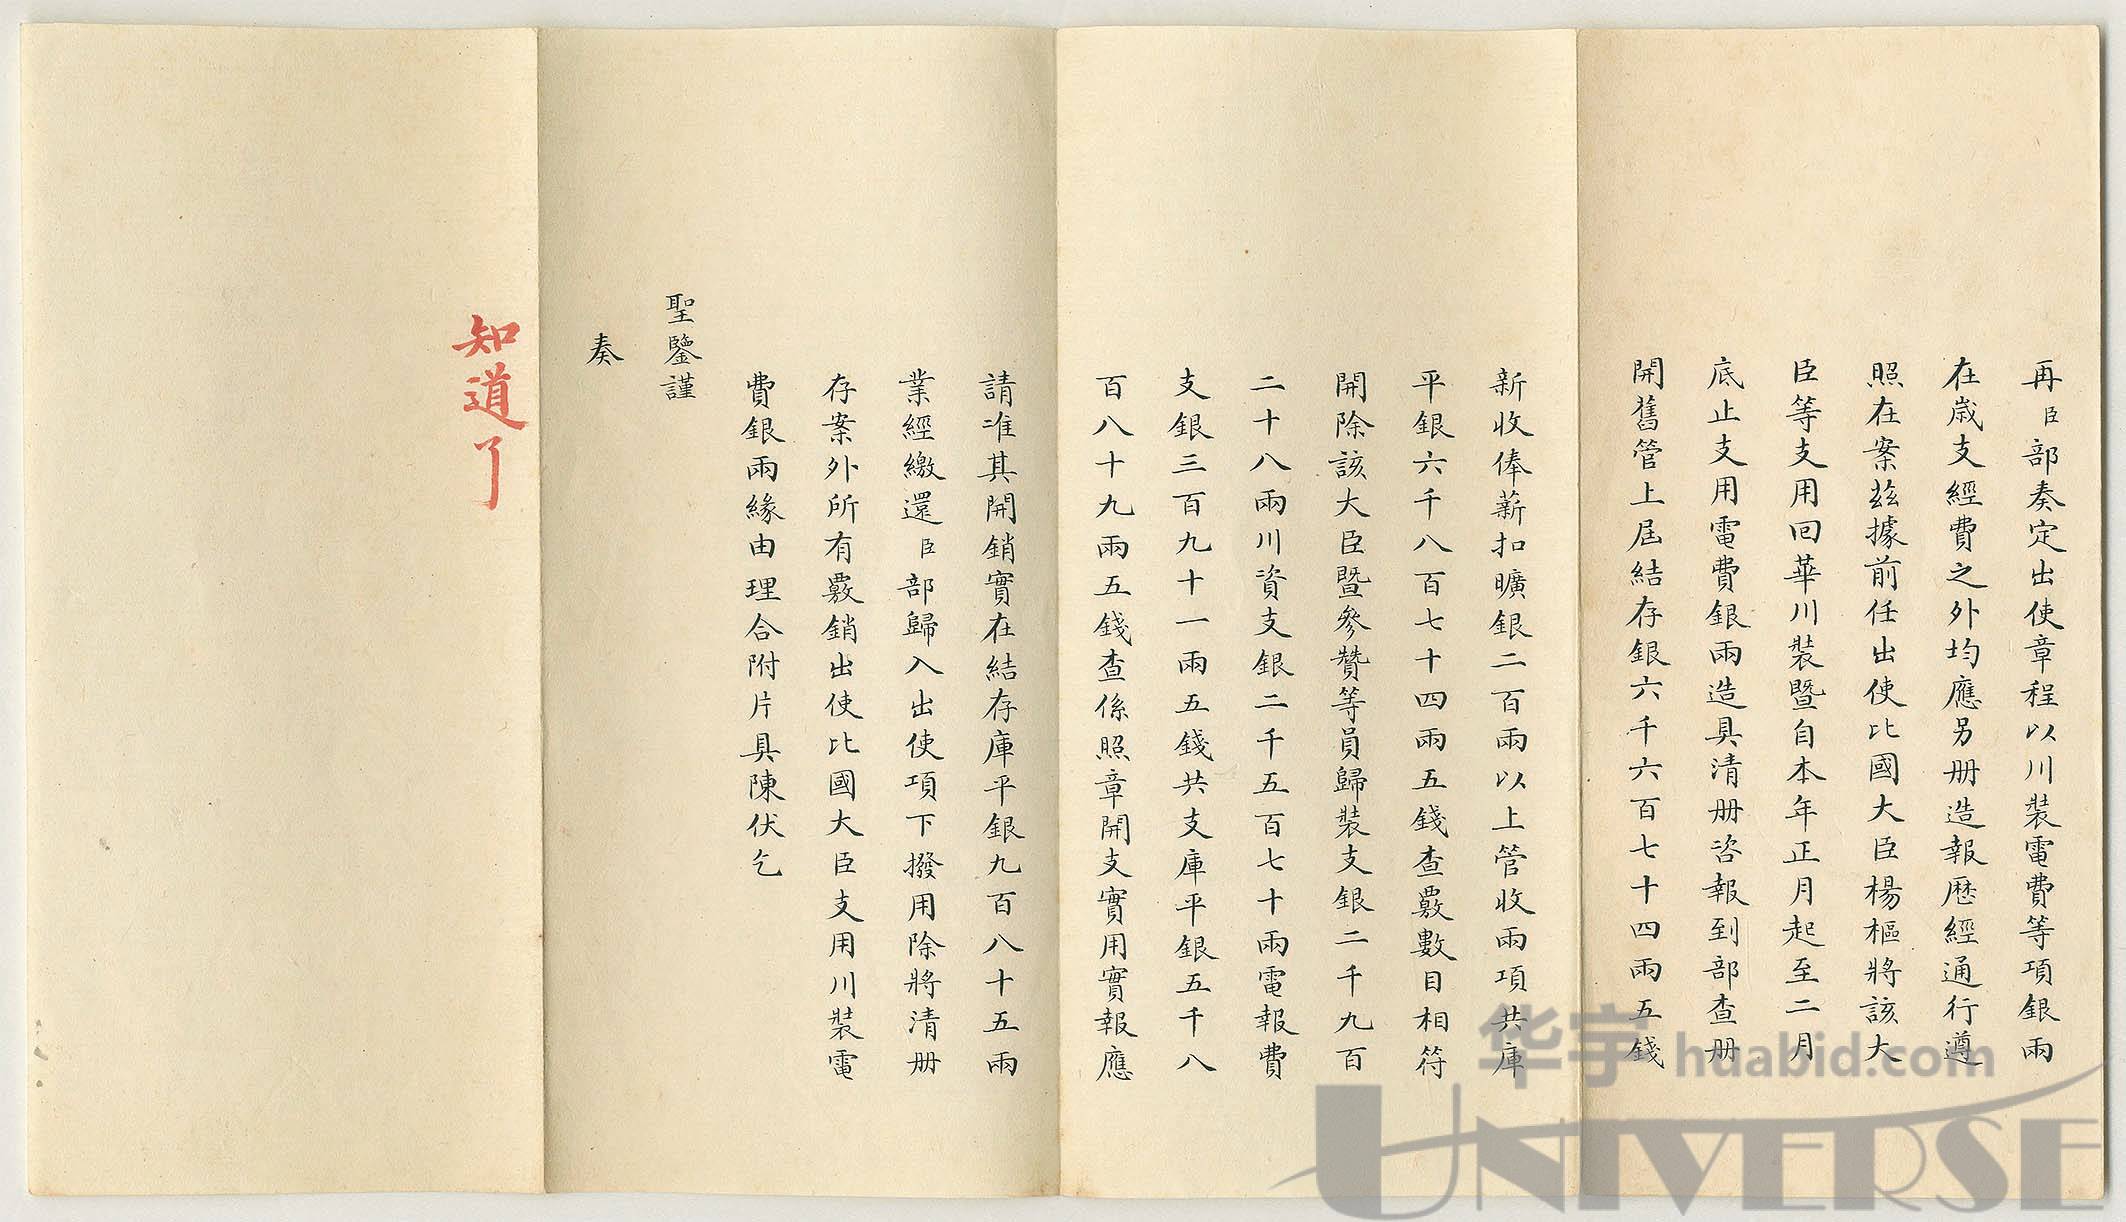 再臣部奏定出使章程以川裝電費等項銀兩
在歲支經費之外均應另册造報歷經通行遵
照在案茲據前任出使比國大臣楊樞將該大
臣等支用回華川裝暨自本年正月起至二月
底止支用電費銀兩造具清册咨報到部查册
開舊管上屆結存銀六千六百七十四兩五錢
新收俸薪扣曠銀二百兩以上管收兩項共庫
平銀六千八百七十四兩五錢查覈數目相符
開除該大臣暨參贊等員歸裝支銀二千九百
二十八兩川資支銀二千五百七十兩電報費
支銀三百九十一兩五錢共支庫平銀五千八
百八十九兩五錢查係照章開支實用實報應
請准其開銷實在結存庫平銀九百八十五兩
業經繳還臣部歸入出使項下撥用除將清册
存案外所有覈銷出使比國大臣支用川裝電
費銀兩緣由理合附片具陳伏乞
聖鑒謹
奏
知道了
华宇huabid.com
UNIVERSE